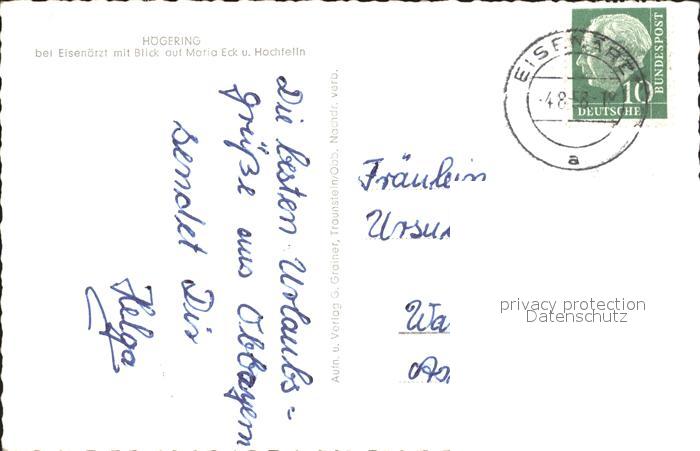 HÖGERING
bei Eisenärzt mit Blick auf Maria Eck u. Hochfelln
Die besten Urlaubs=
grüße aus Obbayern
sendet Dir
Helga
Aufn. u. Verlag G. Grainer, Traunstein/Obb. Nachdr. verb.
Fräulein
Wa
EISENÄRZT
a
10
DEUTSCHE
BUNDESPOST
privacy protection
Datenschutz